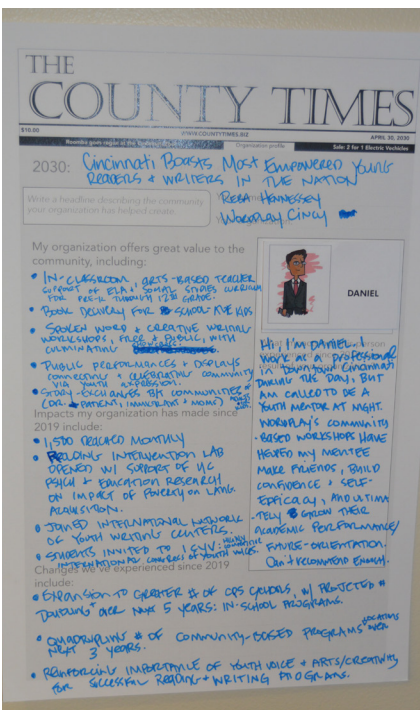 THE
COUNTY TIMES
$10.00
WWW.COUNTYTIMES.BIZ
APRIL 30, 2030
Organization profile
Sale: 2 for 1 Electric Vechicles
2030: Cincinnati Boasts Most Empowered Young
Readers & Writers in the Nation
Write a headline describing the community
your organization has helped create.
Reba Hennessey
Wordplay Cincy
My organization offers great value to the
community, including:
• In-classroom, arts-based teacher
support of ELA & social studies curriculum
for Pre-K through 12th grade.
• Book delivery for school-age kids
• Spoken word & creative writing
workshops, free & public, with
culminating
• Public performances & displays
connecting & celebrating community
via youth expression.
• Story-exchanges b/t communities
(Dr. & patient, immigrant & moms)
Impacts my organization has made since
2019 include:
• 1,500 reached monthly
• Reading Intervention Lab
opened w/ support of UC
Psych & Education research
on impact of poverty on lang.
acquisition.
• Joined International Network
of Youth Writing Centers.
• Students invited to
International Congress of Youth Voices.
Changes we've experienced since 2019
include:
• Expansion to greater # of CPS schools, w/ projected #
doubling over next 5 years: in-school programs.
• Quadrupling # of community-based programs locations over
next 3 years.
• Reinforcing importance of youth voice & arts/creativity
for successful reading & writing programs.
DANIEL
Hi, I'm Daniel. I
work as a professional
in downtown Cincinnati
during the day, but
am called to be a
youth mentor at night.
Wordplay's community
-based workshops have
helped my mentee
make friends, build
confidence & self-
efficacy, and ultima
-tely grow their
academic performance/
future-orientation.
Can't recommend enough.